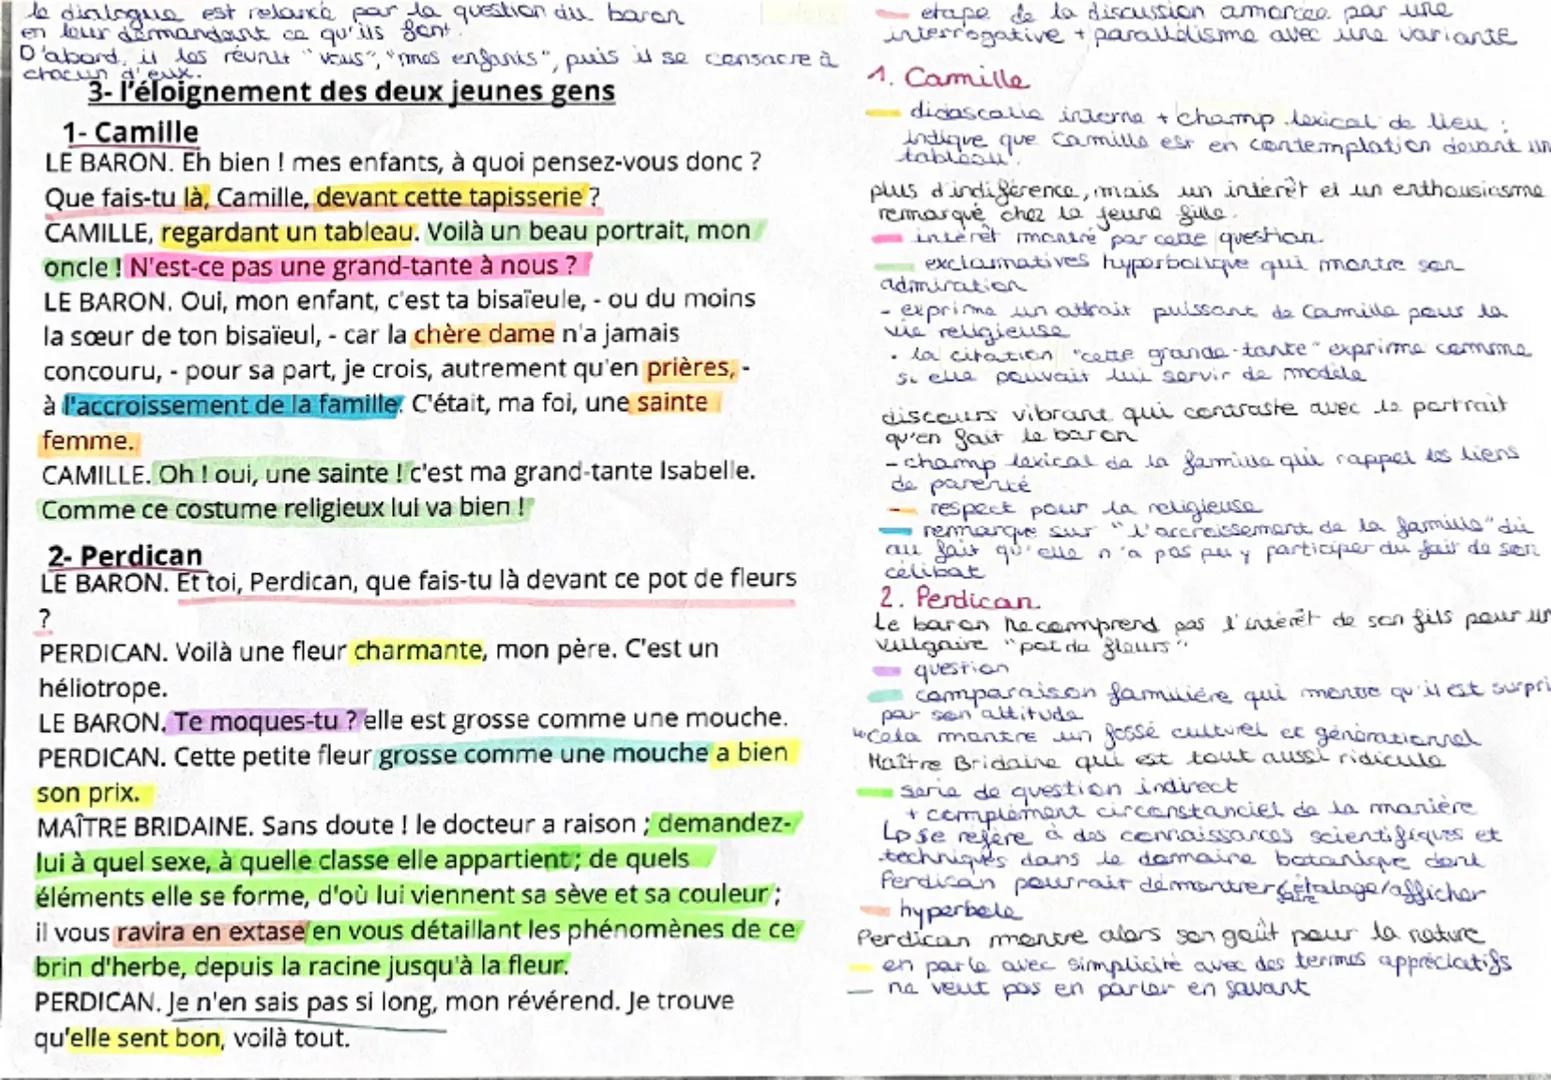 le dialogue est relancé par la question du baron
en leur demandant ce qu'ils font.
D'abord, il les réunit "vous", "mes enfants", puis il se consacre à
chacun d'eux.
3- l'éloignement des deux jeunes gens
1- Camille
LE BARON. Eh bien ! mes enfants, à quoi pensez-vous donc ?
Que fais-tu là, Camille, devant cette tapisserie ?
CAMILLE, regardant un tableau. Voilà un beau portrait, mon
oncle ! N'est-ce pas une grand-tante à nous ?
LE BARON. Oui, mon enfant, c'est ta bisaïeule, - ou du moins
la sœur de ton bisaïeul, - car la chère dame n'a jamais
concouru, - pour sa part, je crois, autrement qu'en prières, -
à l'accroissement de la famille. C'était, ma foi, une sainte
femme.
CAMILLE. Oh ! oui, une sainte ! c'est ma grand-tante Isabelle.
Comme ce costume religieux lui va bien !
2- Perdican
LE BARON. Et toi, Perdican, que fais-tu là devant ce pot de fleurs
?
PERDICAN. Voilà une fleur charmante, mon père. C'est un
héliotrope.
LE BARON. Te moques-tu ? elle est grosse comme une mouche.
PERDICAN. Cette petite fleur grosse comme une mouche a bien
son prix.
MAÎTRE BRIDAINE. Sans doute ! le docteur a raison ; demandez-
lui à quel sexe, à quelle classe elle appartient ; de quels
éléments elle se forme, d'où lui viennent sa sève et sa couleur ;
il vous ravira en extase en vous détaillant les phénomènes de ce
brin d'herbe, depuis la racine jusqu'à la fleur.
PERDICAN. Je n'en sais pas si long, mon révérend. Je trouve
qu'elle sent bon, voilà tout.
étape de la discussion amorcée par une
interrogative + parallélisme avec une variante
1. Camille
didascalie interne + champ lexical de lieu :
indique que Camille est en contemplation devant un
tableau.
plus d'indiférence, mais un intérêt et un enthousiasme
remarqué chez la jeune fille.
intérêt montré par cette question.
exclamatives hyperbolique qui montre son
admiration
- exprime un attrait puissant de Camille pour la
vie religieuse
• la citation "cette grande-tante" exprime comme
si elle pouvait lui servir de modèle
discours vibrant qui contraste avec le portrait
qu'en fait le baron
- champ lexical de la famille qui rappel les liens
de parenté
respect pour la religieuse
remarque sur "l'accroissement de la famille" dû
au fait qu'elle n'a pas pu y participer du fait de son
célibat
2. Perdican
Le baron ne comprend pas l'intérêt de son fils pour un
vulgaire "pot de fleurs".
question
comparaison familière qui montre qu'il est surpri
par son attitude
↳ Cela montre un fossé culturel et générationnel
Maître Bridaine qui est tout aussi ridicule
série de question indirect
+ complément circonstanciel de la manière
↳ se réfère à des connaissances scientifiques et
techniques dans le domaine botanique dont
Perdican pourrait démontrer/faire étalage/afficher
hyperbole
Perdican montre alors son goût pour la nature
en parle avec simplicité avec des termes appréciatifs
ne veut pas en parler en savant